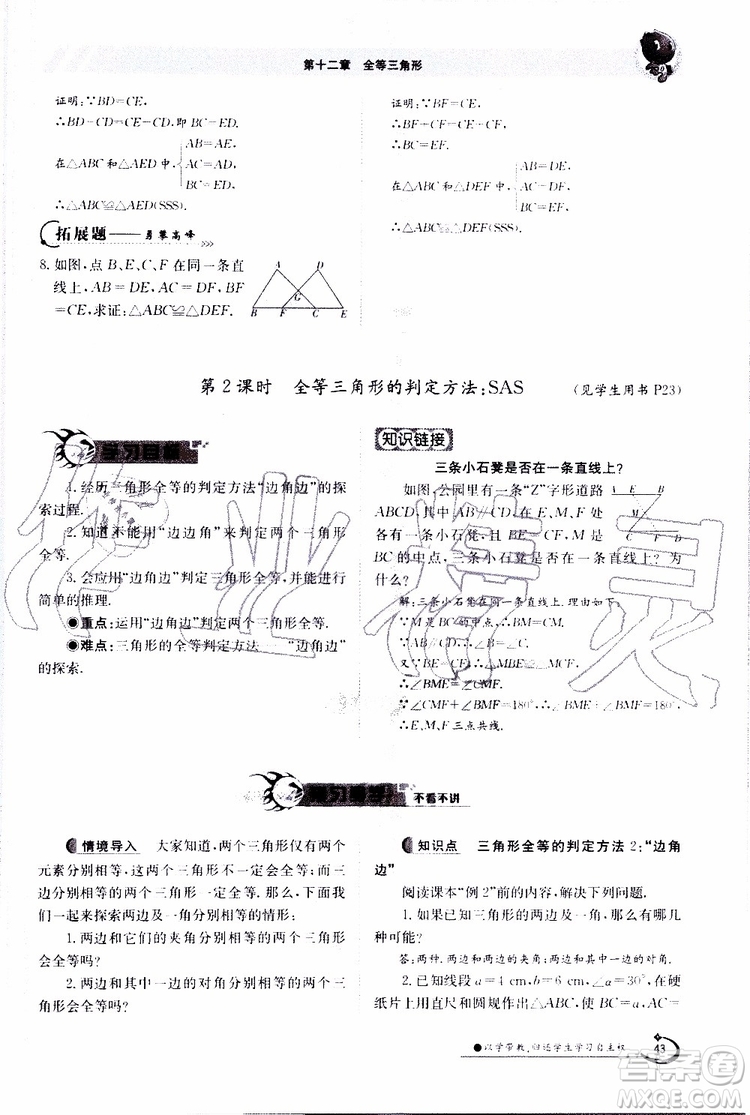 第十二章 全等三角形
证明:∵BD=CE,
∴BD-CD=CE-CD,即 BC=ED.
在△ABC和△AED中,
AB=AE,
AC=AD,
BC=ED,
∴△ABC≌△AED(SSS).
拓展题——勇攀高峰
8.如图,点 B、E、C、F 在同一条直
线上,AB=DE,AC=DF,BF
=CE,求证:△ABC≌△DEF.
A D
G
B F C E
证明:∵BF=CE,
∴BF+CF=CE+CF,
∴BC=EF.
在△ABC和△DEF中,
AB=DE,
AC=DF,
BC=EF,
∴△ABC≌△DEF(SSS).
第 2 课时 全等三角形的判定方法:SAS (见学生用书 P23)
学习目标
1.经历三角形全等的判定方法“边角边”的探
索过程.
2.知道不能用“边边角”来判定两个三角形
全等.
3.会应用“边角边”判定三角形全等,并能进行
简单的推理.
重点:运用“边角边”判定两个三角形全等.
难点:三角形的全等判定方法——“边角边”
的探索.
知识链接
三条小石凳是否在一条直线上?
如图,公园里有一条“Z”字形道路
ABCD,其中 AB∥CD,在 E、M、F 处
各有一条小石凳,且 BE=CF,M 是
BC 的中点,三条小石凳是否在一条直线上?为
什么?
解:三条小石凳在同一条直线上.理由如下:
∵M 是 BC 的中点,∴BM=CM.
∵AB∥CD,∴∠B=∠C.
又∵BE=CF,∴△MBE≌△MCF.
∴∠BME=∠CMF.
∵∠CMF+∠BMF=180°,∴∠BME+∠BMF=180°,
∴E、M、F 三点共线.
不看不讲
情境导入 大家知道,两个三角形仅有两个
元素分别相等,两个三角形不一定全等;而三
边分别相等的两个三角形是全等的,下面我们
一起来探索两边及一角分别相等的情形:
1.两边和它们的夹角分别相等的两个三角形
会全等吗?
2.两边和其中一边的对角分别相等的两个三
角形会全等吗?
知识点 三角形全等的判定方法 2:“边角
边”
阅读课本“例 2”前的内容,解决下列问题.
1.如果已知三角形的两边及一角,那么有几
种可能?
答:两种.两边和两边的夹角;两边和一边的对角.
2.已知线段 a=4 cm,b=6 cm,α=30°,在硬
纸片上用直尺和圆规作出△ABC,使 BC=a,AC=
以学带教,归还学生学习自主权
43